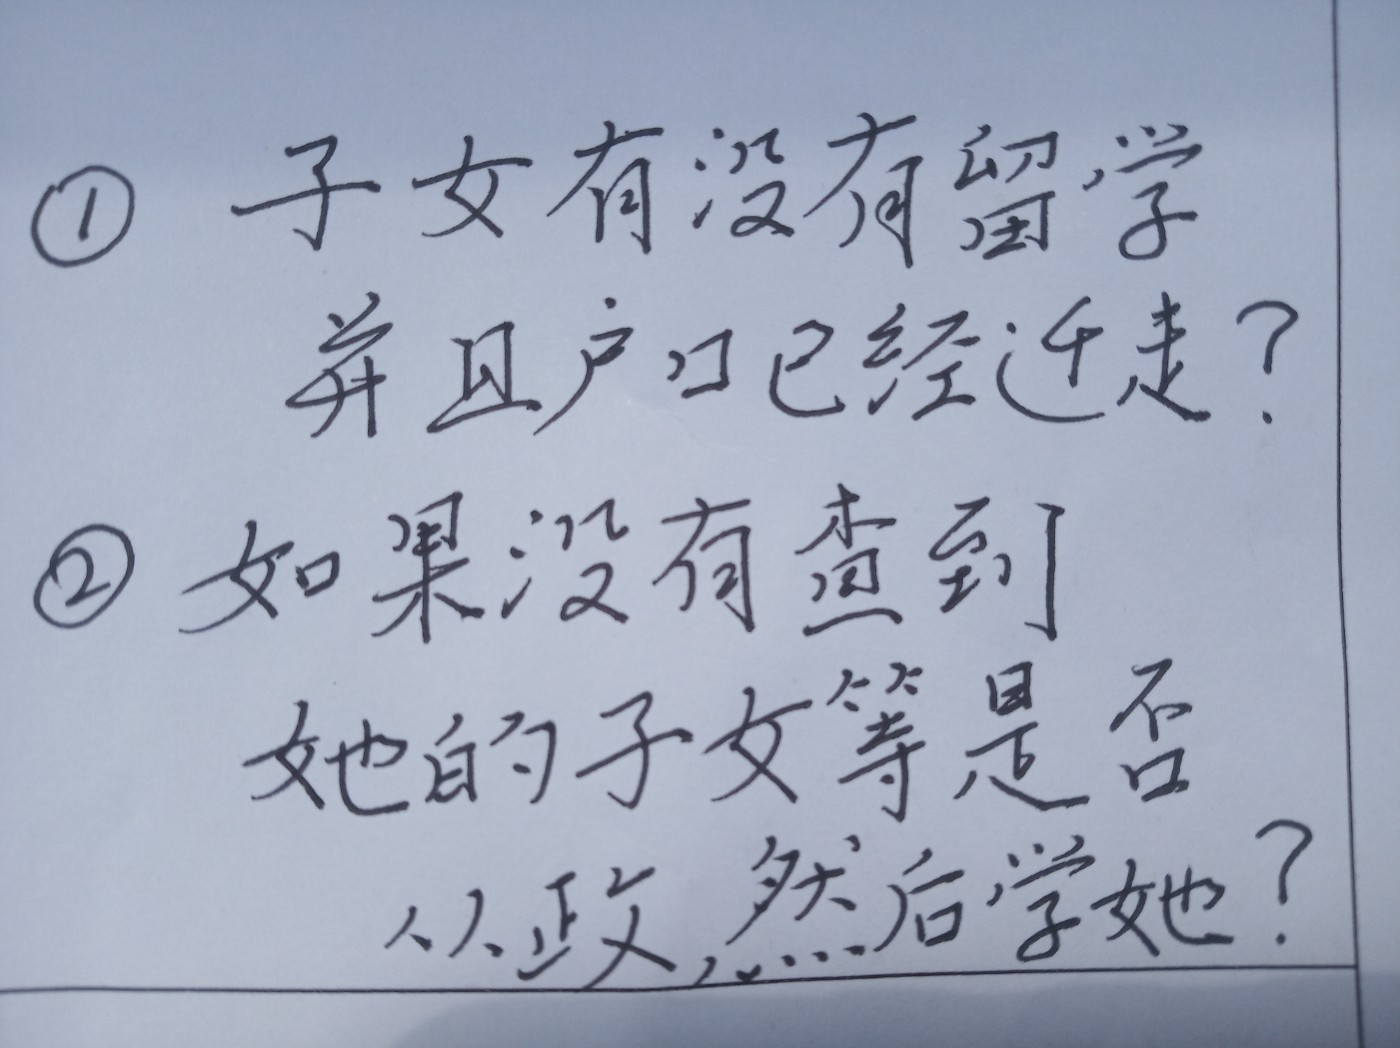 ① 子女有没有留学
并且户口已经迁走？
② 如果没有查到
她的子女等是否
从政，然后学她？